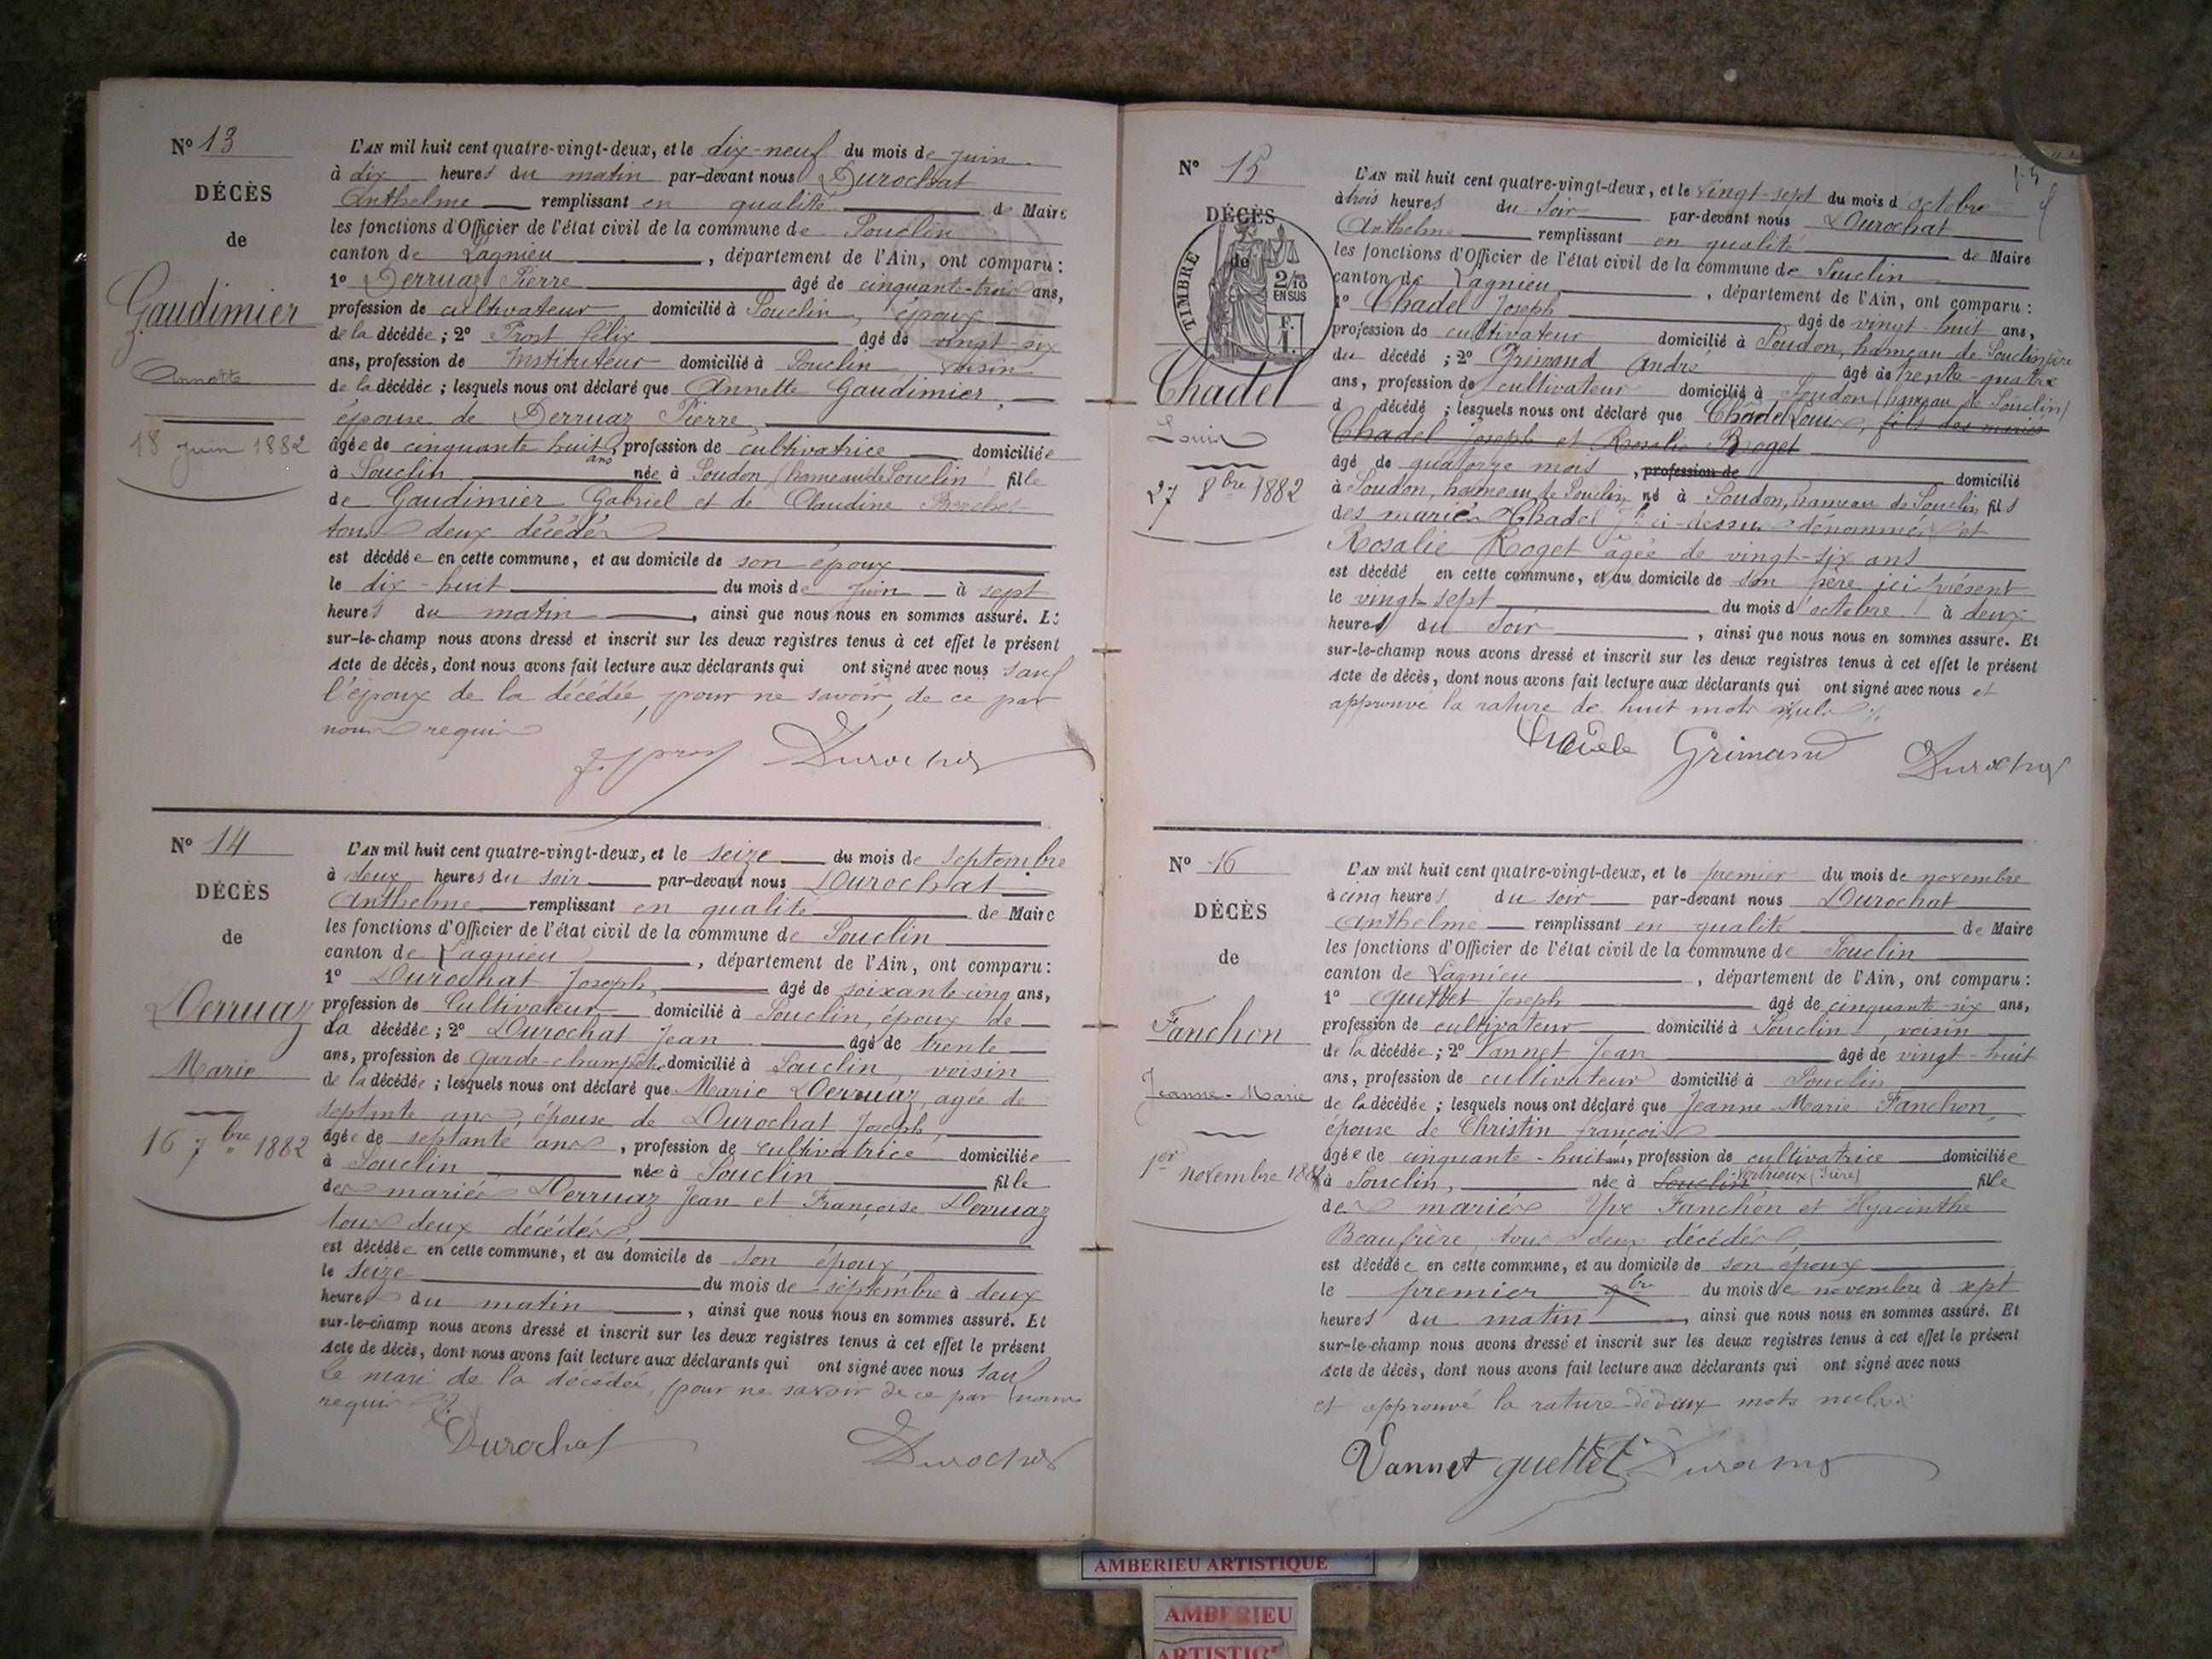 N° 13
DÉCÈS
de
Gaudimier
Annette
18 juin 1882
L'AN mil huit cent quatre-vingt-deux, et le dix-neuf du mois de juin
à dix heures du matin par-devant nous Durochat
Anthelme remplissant en qualité de Maire
les fonctions d'Officier de l'état civil de la commune de Souclin
canton de Lagnieu, département de l'Ain, ont comparu :
1° Derruaz Pierre âgé de cinquante-trois ans,
profession de cultivateur domicilié à Souclin, époux
de la décédée ; 2° Prost félix âgé de vingt-six
ans, profession de Instituteur domicilié à Souclin voisin
de la décédée ; lesquels nous ont déclaré que Annette Gaudimier,
épouse de Derruaz Pierre,
âgée de cinquante huit ans, profession de cultivatrice domiciliée
à Souclin née à Soudon (hameau de Souclin) fille
de Gaudimier Gabriel et de Claudine Berchet
tous deux décédés
est décédée en cette commune, et au domicile de son époux
le dix-huit du mois de juin à sept
heures du matin, ainsi que nous nous en sommes assuré. Et
sur-le-champ nous avons dressé et inscrit sur les deux registres tenus à cet effet le présent
Acte de décès, dont nous avons fait lecture aux déclarants qui ont signé avec nous sauf
l'époux de la décédée, pour ne savoir, de ce par
nous requis
f. prost Durochat
N° 14
DÉCÈS
de
Derruaz
Marie
16 7bre 1882
L'AN mil huit cent quatre-vingt-deux, et le seize du mois de septembre
à deux heures du soir par-devant nous Durochat
Anthelme remplissant en qualité de Maire
les fonctions d'Officier de l'état civil de la commune de Souclin
canton de Lagnieu, département de l'Ain, ont comparu :
1° Durochat Joseph, âgé de soixante-cinq ans,
profession de Cultivateur domicilié à Souclin, époux de
la décédée ; 2° Durochat Jean âgé de trente
ans, profession de garde-champêtre domicilié à Souclin, voisin
de la décédée ; lesquels nous ont déclaré que Marie Derruaz, agée de
septante ans, épouse de Durochat Joseph,
âgée de septante ans, profession de cultivatrice domiciliée
à Souclin née à Souclin fille
des mariés Derruaz Jean et Françoise Derruaz
tous deux décédés,
est décédée en cette commune, et au domicile de son époux,
le seize du mois de septembre à deux
heures du matin, ainsi que nous nous en sommes assuré. Et
sur-le-champ nous avons dressé et inscrit sur les deux registres tenus à cet effet le présent
Acte de décès, dont nous avons fait lecture aux déclarants qui ont signé avec nous sauf
le mari de la décédée, pour ne savoir de ce par nous
requis
Durochat Durochat
N° 15
DÉCÈS
de
TIMBRE
2/10
EN SUS
F.
1.
Chadel
Louis
27 8bre 1882
L'AN mil huit cent quatre-vingt-deux, et le vingt-sept du mois d'octobre
à trois heures du soir par-devant nous Durochat
Anthelme remplissant en qualité de Maire
les fonctions d'Officier de l'état civil de la commune de Souclin
canton de Lagnieu, département de l'Ain, ont comparu :
1° Chadel Joseph âgé de vingt-huit ans,
profession de cultivateur domicilié à Soudon, hameau de Souclin, père
du décédé ; 2° Grimand André âgé de trente-quatre
ans, profession de cultivateur domicilié à Soudon (hameau de Souclin)
d décédé ; lesquels nous ont déclaré que Chadel Louis, fils des mariés
Chadel Joseph et Rosalie Roget
âgé de quatorze mois, profession de domicilié
à Soudon, hameau de Souclin, né à Soudon, hameau de Souclin fils
des mariés Chadel Jh ci-dessus dénommés et
Rosalie Roget âgée de vingt-six ans
est décédé en cette commune, et au domicile de son père ici présent
le vingt sept du mois d'octobre à deux
heures du soir, ainsi que nous nous en sommes assuré. Et
sur-le-champ nous avons dressé et inscrit sur les deux registres tenus à cet effet le présent
Acte de décès, dont nous avons fait lecture aux déclarants qui ont signé avec nous et
approuvé la rature de huit mots nuls
Chadele Grimand Durochat
N° 16
DÉCÈS
de
Fanchon
Jeanne-Marie
1er novembre 1882
L'AN mil huit cent quatre-vingt-deux, et le premier du mois de novembre
à cinq heures du soir par-devant nous Durochat
Anthelme remplissant en qualité de Maire
les fonctions d'Officier de l'état civil de la commune de Souclin
canton de Lagnieu, département de l'Ain, ont comparu :
1° Guettet Joseph âgé de cinquante-six ans,
profession de cultivateur domicilié à Souclin voisin
de la décédée ; 2° Vannet Jean âgé de vingt-huit
ans, profession de cultivateur domicilié à Souclin
de la décédée ; lesquels nous ont déclaré que Jeanne-Marie Fanchon,
épouse de Christin françois
âgée de cinquante-huit ans, profession de cultivatrice domiciliée
à Souclin, née à Souclin Vertrieux (Isère) fille
des mariés Yve Fanchon et Hyacinthe
Beaufrère, tous deux décédés,
est décédée en cette commune, et au domicile de son époux
le premier 9bre du mois de novembre à sept
heures du matin, ainsi que nous nous en sommes assuré. Et
sur-le-champ nous avons dressé et inscrit sur les deux registres tenus à cet effet le présent
Acte de décès, dont nous avons fait lecture aux déclarants qui ont signé avec nous
et approuvé la rature de deux mots nuls
Vannet guettet Durochat
AMBERIEU ARTISTIQUE
AMBERIEU
ARTISTIQ